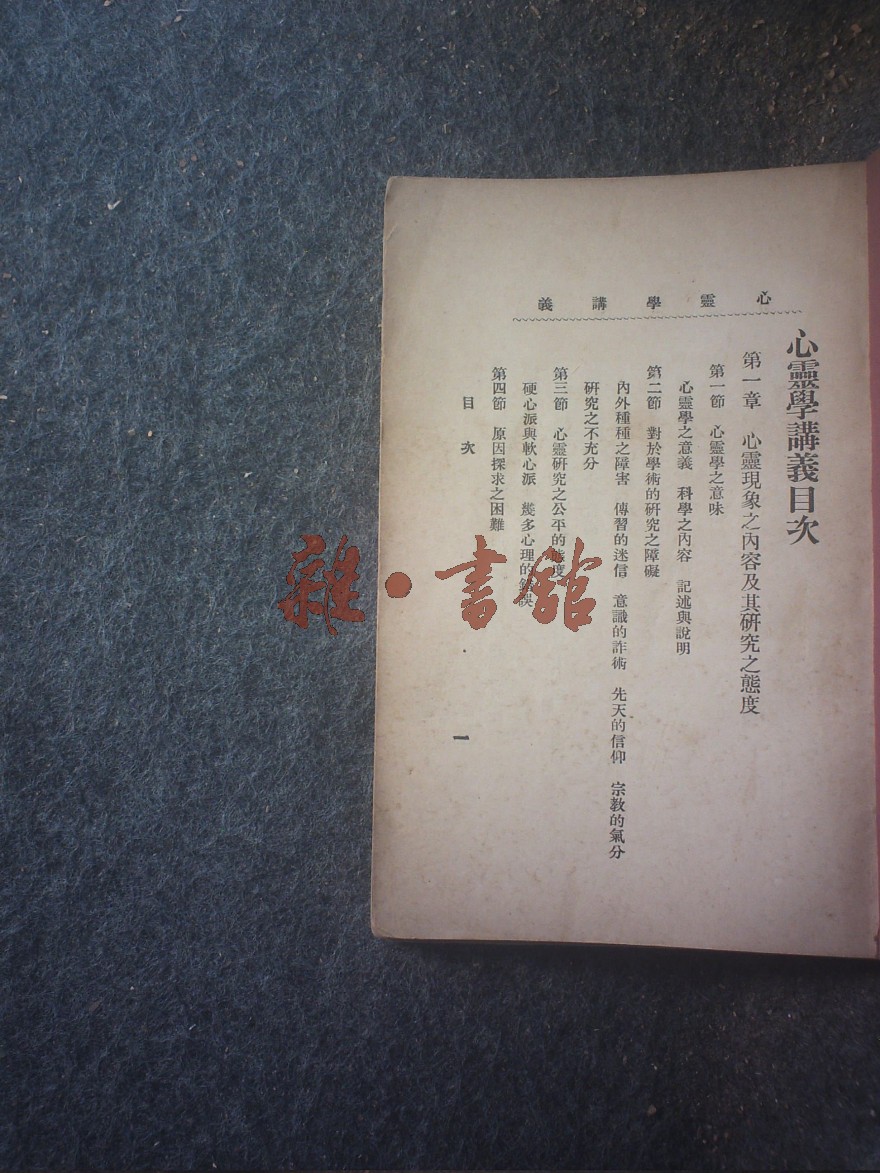 心靈學講義
心靈學講義目次
第一章　心靈現象之內容及其研究之態度
第一節　心靈學之意味
心靈學之意義　科學之內容　記述與說明
第二節　對於學術的研究之障礙
內外種種之障害　傳習的迷信　意識的詐術　先天的信仰　宗教的氣分
研究之不充分
第三節　心靈研究之公平的態度
硬心派與軟心派　幾多心理的錯誤
第四節　原因探求之困難
目次
一
雜·書館